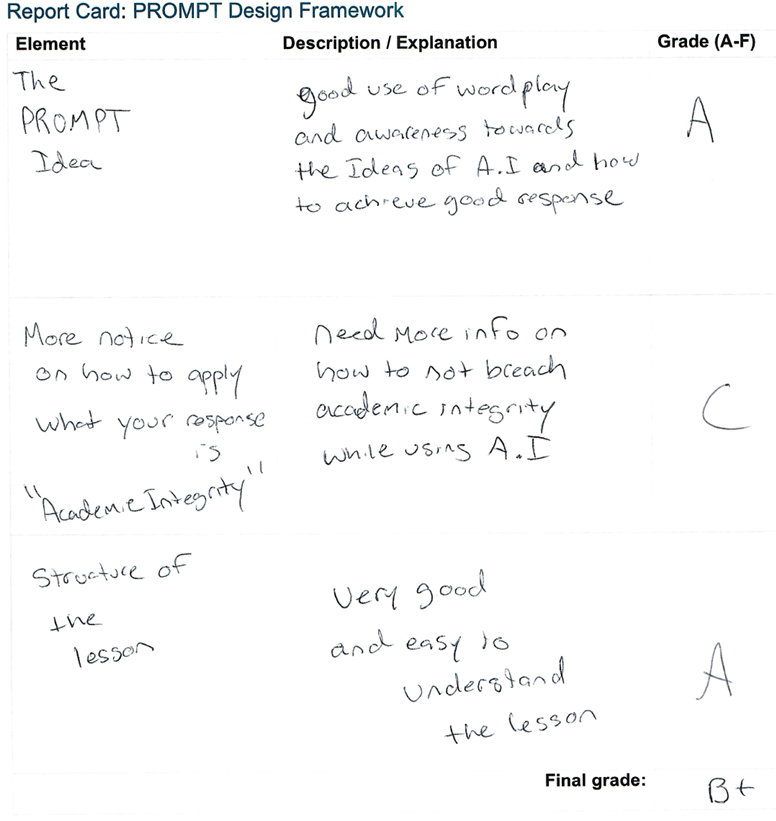 Report Card: PROMPT Design Framework
Element Description / Explanation Grade (A-F)
The
PROMPT
Idea
good use of wordplay
and awareness towards
the Ideas of A.I and how
to achieve good response
A
More notice
on how to apply
what your response
is
"Academic Integrity"
need more info on
how to not breach
academic integrity
while using A.I
C
Structure of
the
lesson
very good
and easy to
understand
the lesson
A
Final grade: B+